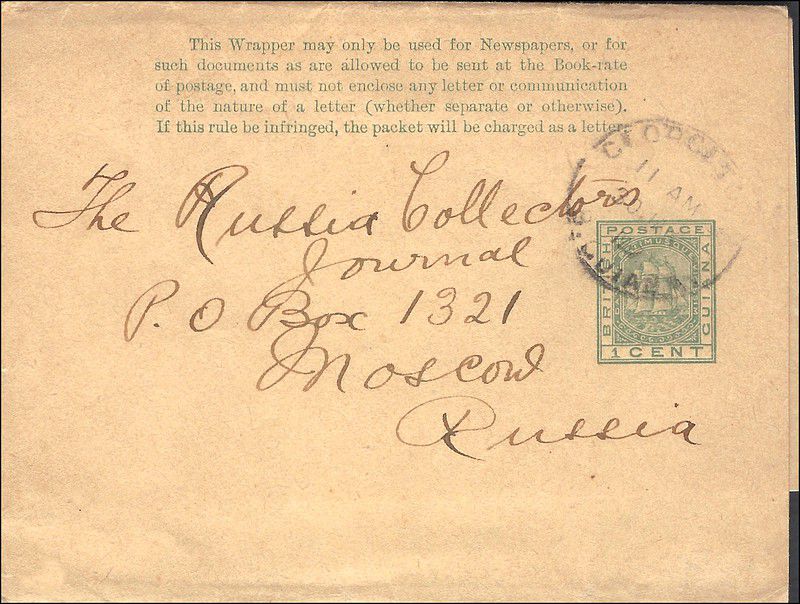 This Wrapper may only be used for Newspapers, or for
such documents as are allowed to be sent at the Book-rate
of postage, and must not enclose any letter or communication
of the nature of a letter (whether separate or otherwise).
If this rule be infringed, the packet will be charged as a letter.
11 AM
The Russia Collectors
Journal
P. O Box 1321
Moscow
Russia
POSTAGE
BRITISH
GUIANA
1 CENT